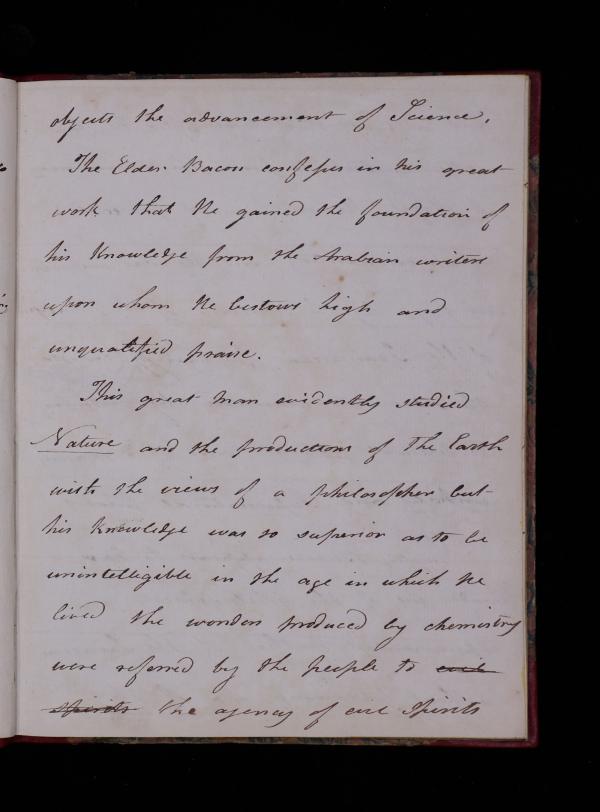 objects the advancement of Science.
The Elder Bacon confesses in his great
work that he gained the foundation of
his Knowledge from the Arabian writers
upon whom he bestows high and
unqualified praise.
This great man evidently studied
Nature and the productions of The Earth
with the views of a philosopher but
his Knowledge was so superior as to be
unintelligible in the age in which he
lived the wonders produced by chemistry
were referred by the people to evil
spirits the agency of evil Spirits